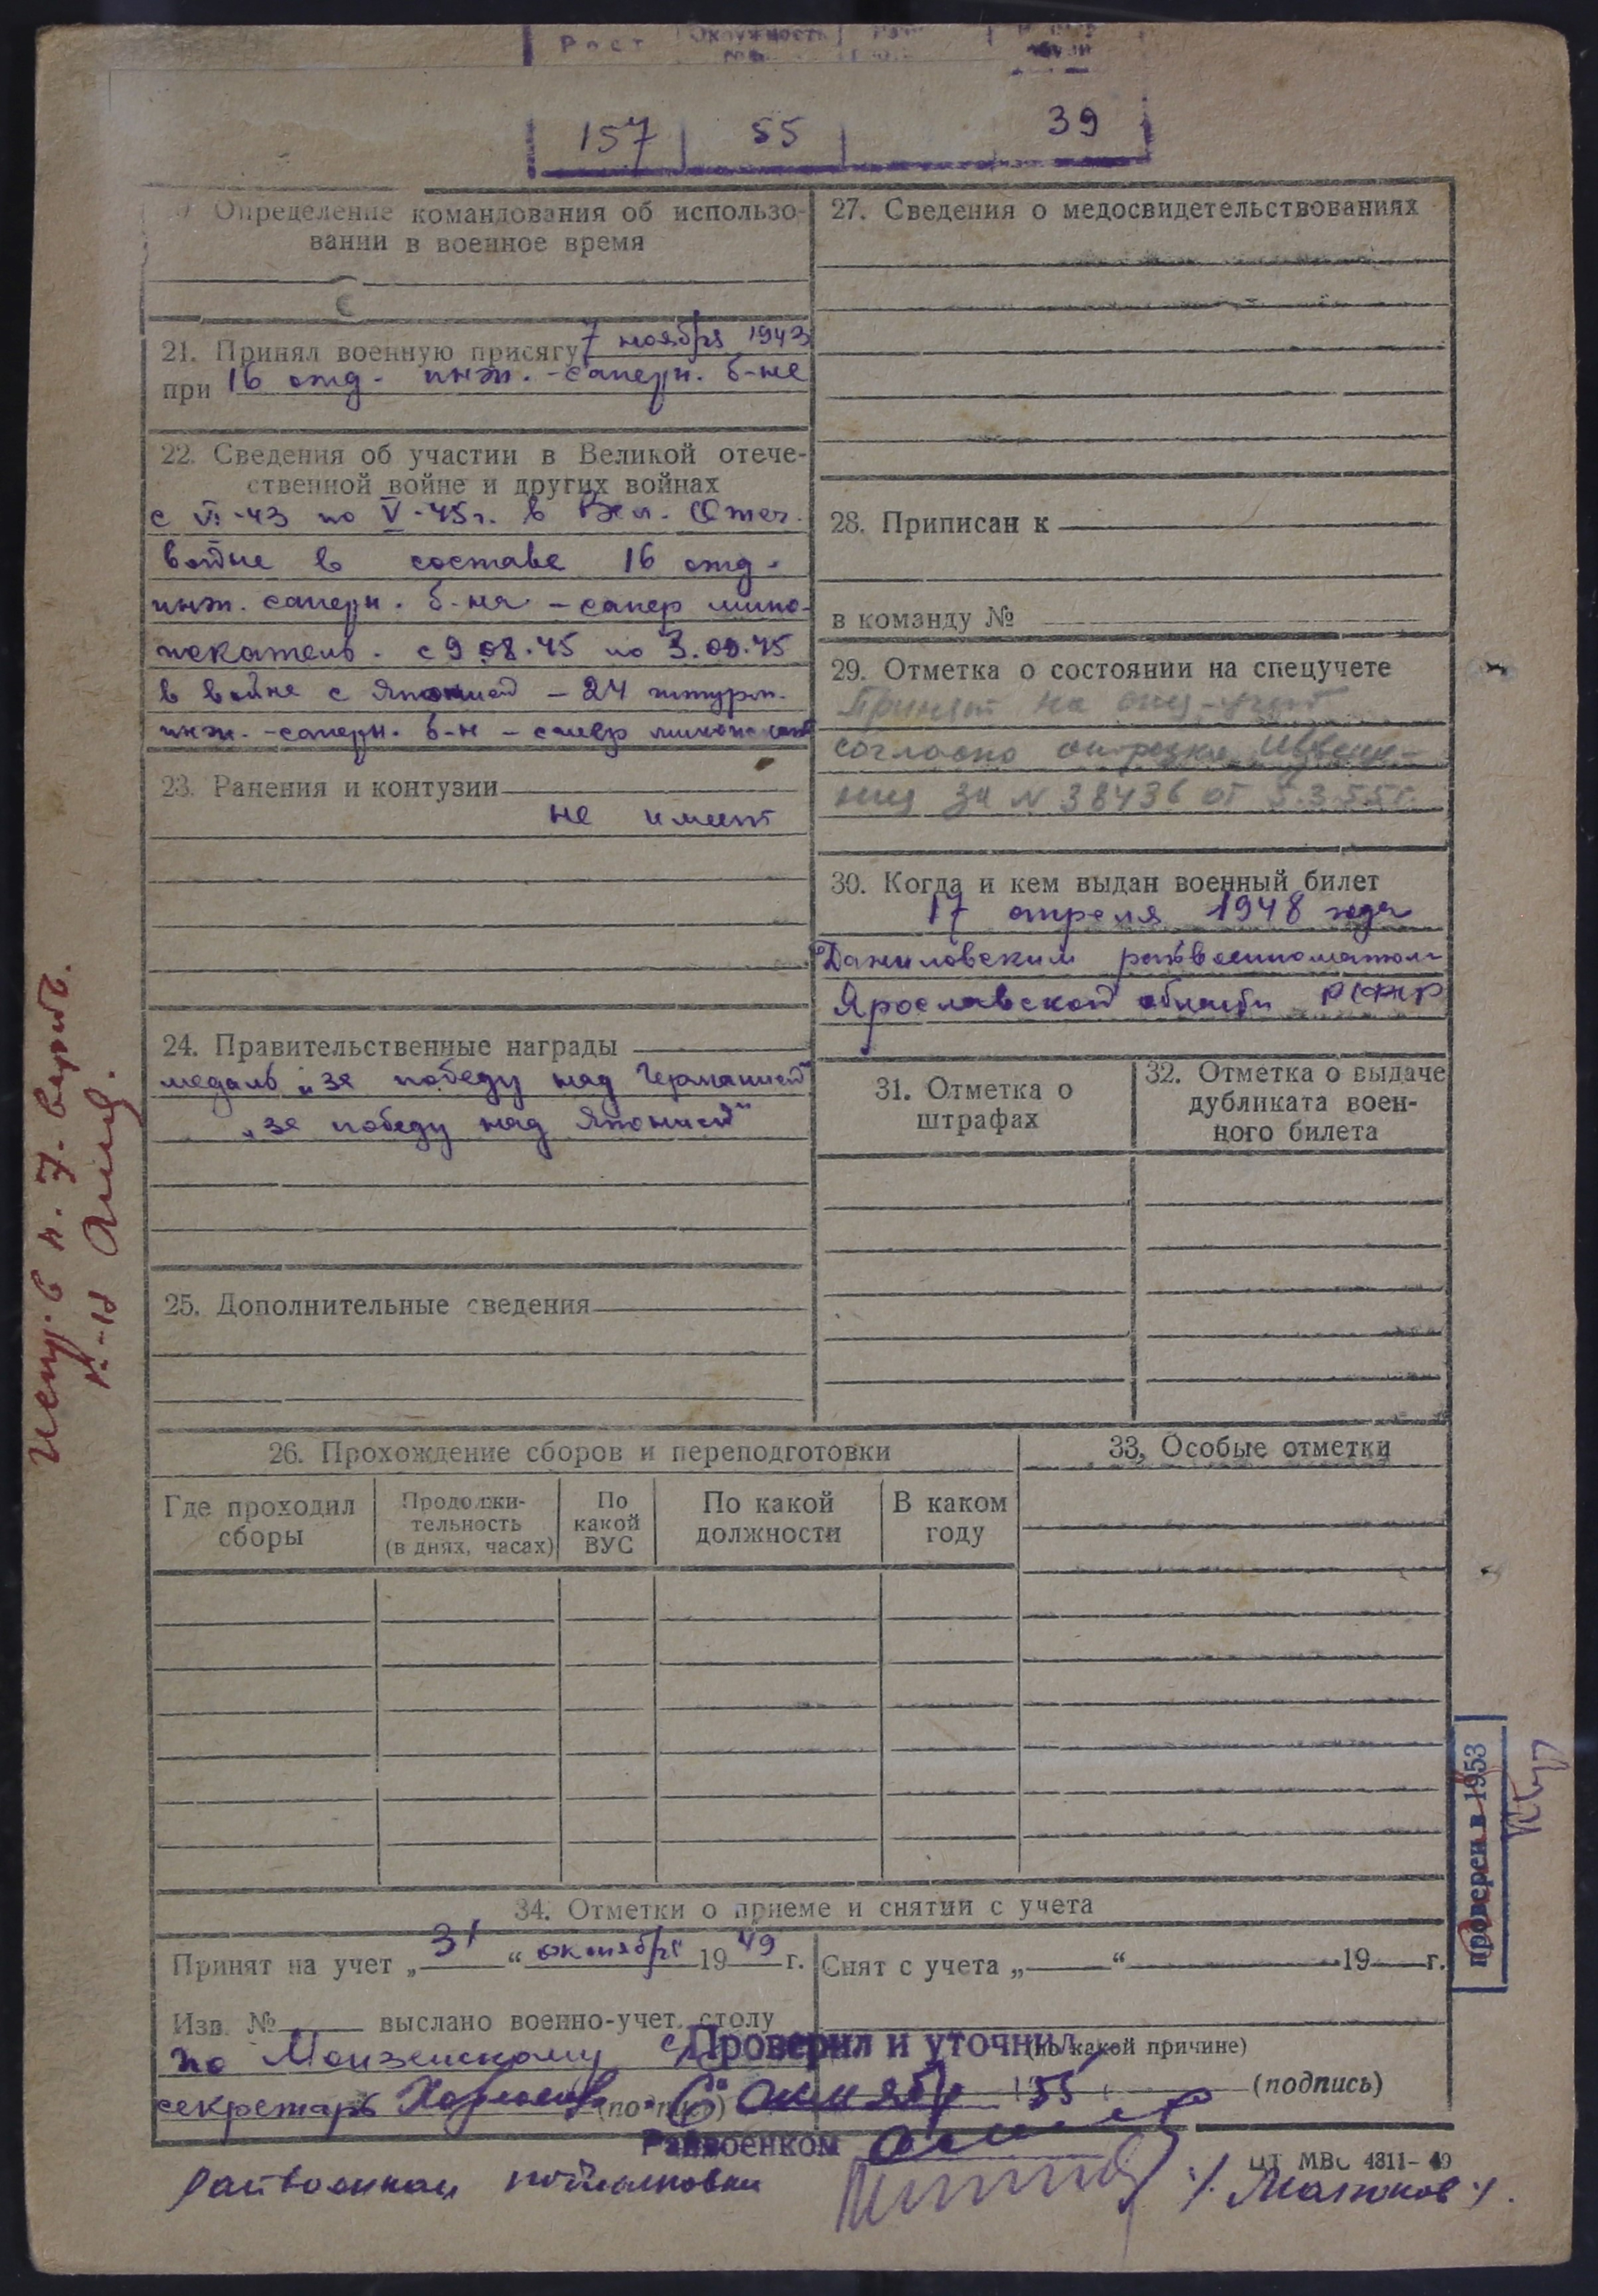 Рост Окружность
157 55 39
Определение командования об использо-
вании в военное время
21. Принял военную присягу 7 ноября 1943
при 16 отд. инж.-саперн. б-не
22. Сведения об участии в Великой отече-
ственной войне и других войнах
с VI-43 по V-45г. в Вел. Отеч.
войне в составе 16 отд.
инж. саперн. б-на - сапер мино-
искатель. с 9.08.45 по 3.09.45
в войне с Японией - 24 штурм.
инж.-саперн. б-н - сапер
23. Ранения и контузии
не имеет
24. Правительственные награды
медаль „за победу над Германией"
„за победу над Японией"
25. Дополнительные сведения
27. Сведения о медосвидетельствованиях
28. Приписан к
в команду №
29. Отметка о состоянии на спецучете
Принят на спец-учет
согласно отрезка извеще-
ния за N 38436 от 5.3.55г.
30. Когда и кем выдан военный билет
17 апреля 1948 года
Даниловским райвоенкоматом
Ярославской области РСФСР
31. Отметка о
штрафах
32. Отметка о выдаче
дубликата воен-
ного билета
26. Прохождение сборов и переподготовки
Где проходил
сборы
Продолжи-
тельность
(в днях, часах)
По
какой
ВУС
По какой
должности
В каком
году
33. Особые отметки
34. Отметки о приеме и снятии с учета
Принят на учет „31“ октября 1949 г.
Изв. № выслано военно-учет. столу
по Монзенскому с/с
секретарь
Снят с учета „ “ 19 г.
(по какой причине)
(подпись)
Проверил и уточнил
6 октября 55
Райвоенком
ЦТ МВС 4811-49
проверен в 1953